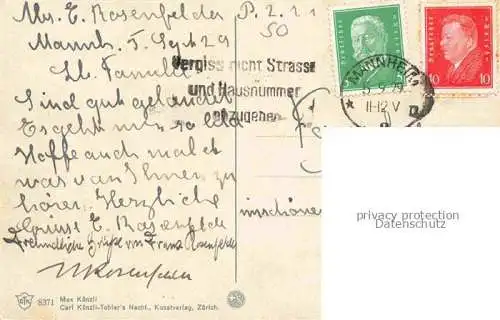 Abs. E. Rosenfelder
Mannh. 5. Sept 29
P. 2. 2 1
50
Lb. Familie
Sind gut gelandet
Es geht mir so lala
Hoffe auch mal et
was von Ihnen zu
hören. Herzliche
Grüsse E. Rosenfelder
Freundliche Grüsse von Franz Rosenfelder
Vergiss nicht Strasse
und Hausnummer
anzugeben
MANNHEIM
5.9.29
11-12 V
Deutsches Reich
5
Deutsches Reich
10
privacy protection
Datenschutz
8371
Max Känzli
Carl Künzli-Tobler's Nachf., Kunstverlag, Zürich.